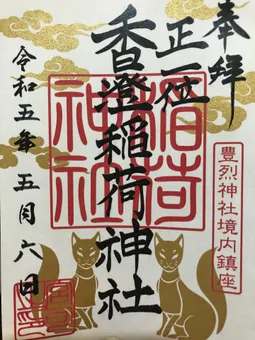 奉拝
豊烈神社境内鎮座
正一位
香澄稲荷神社
稲荷
神社
令和五年五月六日